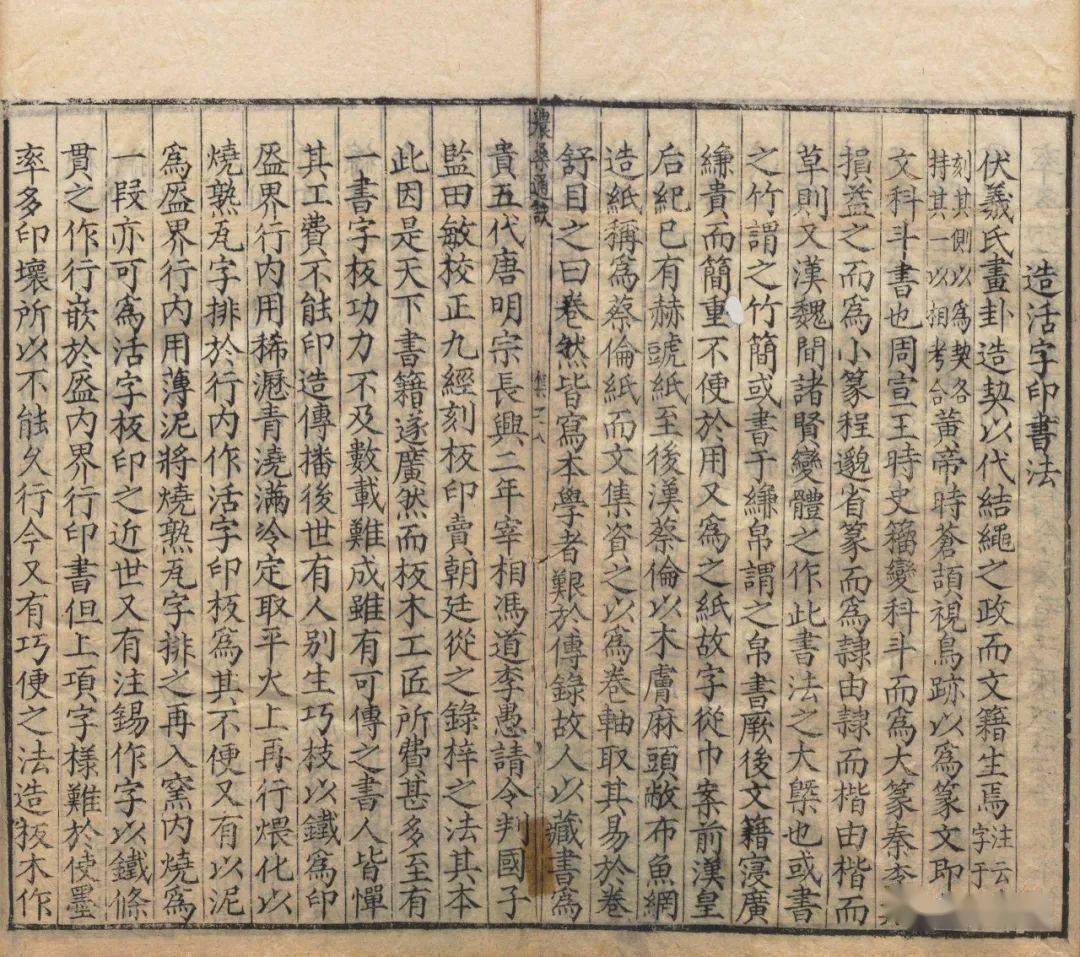 造活字印書法
伏羲氏畫卦造契以代結繩之政而文籍生焉注云
字于
刻其側以爲契各
持其一以相考合黃帝時蒼頡視鳥跡以爲篆文即
文科斗書也周宣王時史籀變科斗而爲大篆秦李
損益之而爲小篆程邈省篆而爲隷由隷而楷由楷而
草則又漢魏間諸賢變體之作此書法之大槩也或書
之竹謂之竹簡或書于縑帛謂之帛書厥後文籍寖廣
縑貴而簡重不便於用又爲之紙故字從巾案前漢皇
后紀已有赫蹏紙至後漢蔡倫以木膚麻頭敝布魚網
造紙稱爲蔡倫紙而文集資之以爲卷軸取其易於卷
舒目之曰卷然皆寫本學者艱於傳錄故人以藏書爲
農桑通訣
貴五代唐明宗長興二年宰相馮道李愚請令判國子
監田敏校正九經刻板印賣朝廷從之錄梓之法其本
此因是天下書籍遂廣然而板木工匠所費甚多至有
一書字板功力不及數載難成雖有可傳之書人皆憚
其工費不能印造傳播後世有人别生巧技以鐵爲印
盔界行内用稀瀝青澆滿冷定取平火上再行煨化以
燒熟瓦字排於行内作活字印板爲其不便又有以泥
爲盔界行内用薄泥將燒熟瓦字排之再入窯内燒爲
一段亦可爲活字板印之近世又有注錫作字以鐵條
貫之作行嵌於盔内界行印書但上項字樣難於使墨
率多印壞所以不能久行今又有巧便之法造板木作